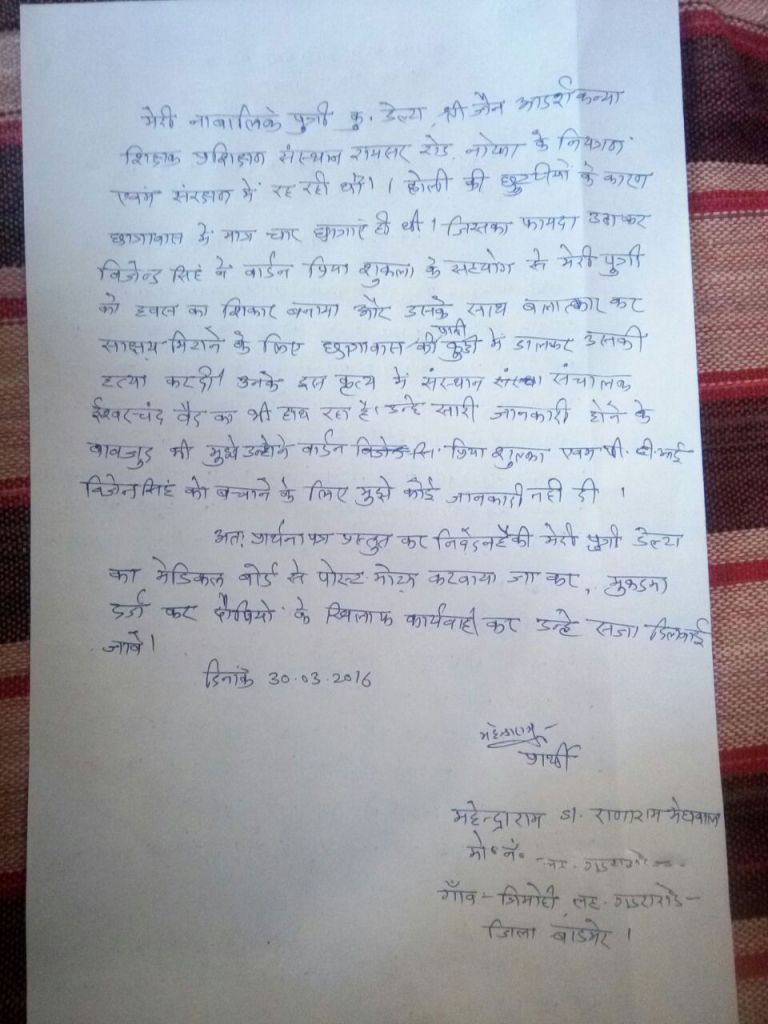 मेरी नाबालिके पुत्री कु. डेल्टा श्री जैन आदर्श कन्या
शिक्षक प्रशिक्षण संस्थान रायसर रोड, नोखा के नियंत्रण
एवंम संरक्षण में रह रही थी। होली की छुट्टीयों के कारण
छात्रावास में मात्र चार छात्राएं ही थी। जिसका फायदा उठाकर
विजेन्द्र सिंह ने वार्डन प्रिया शुकला के सहयोग से मेरी पुत्री
को हवस का शिकार बनाया और उसके साथ बलात्कार कर
साक्ष्य मिटाने के लिए छात्रावास की पानी कुडी में डालकर उसकी
हत्या कर दी। उनके इस कृत्य में संस्थान संस्था संचालक
ईश्वरचंद वैद का भी हाथ रहा है। उन्हे सारी जानकारी होने के
बावजुद भी मुझे उन्होने वार्डन प्रिया शुल्का एवंम पी. टी. आई
विजेन्द्र सिंह को बचाने के लिए मुझे कोई जानकारी नही दी ।
अतः प्रार्थना पत्र प्रस्तुत कर निवेदन है की मेरी पुत्री डेल्टा
का मेडिकल बोर्ड से पोस्ट मोटम करवाया जा कर, मुकदमा
दर्ज कर दोषियो के खिलाफ कार्यवाही कर उन्हे सजा दिलवाई
जावें।
दिनांक 30.03.2016
महेन्द्राराम
प्रार्थी
महेन्द्राराम S/. राणाराम मेघवाल
मो॰ नं॰
गाँव - त्रिमोही, तह. गडरारोड -
जिला बाडमेर ।